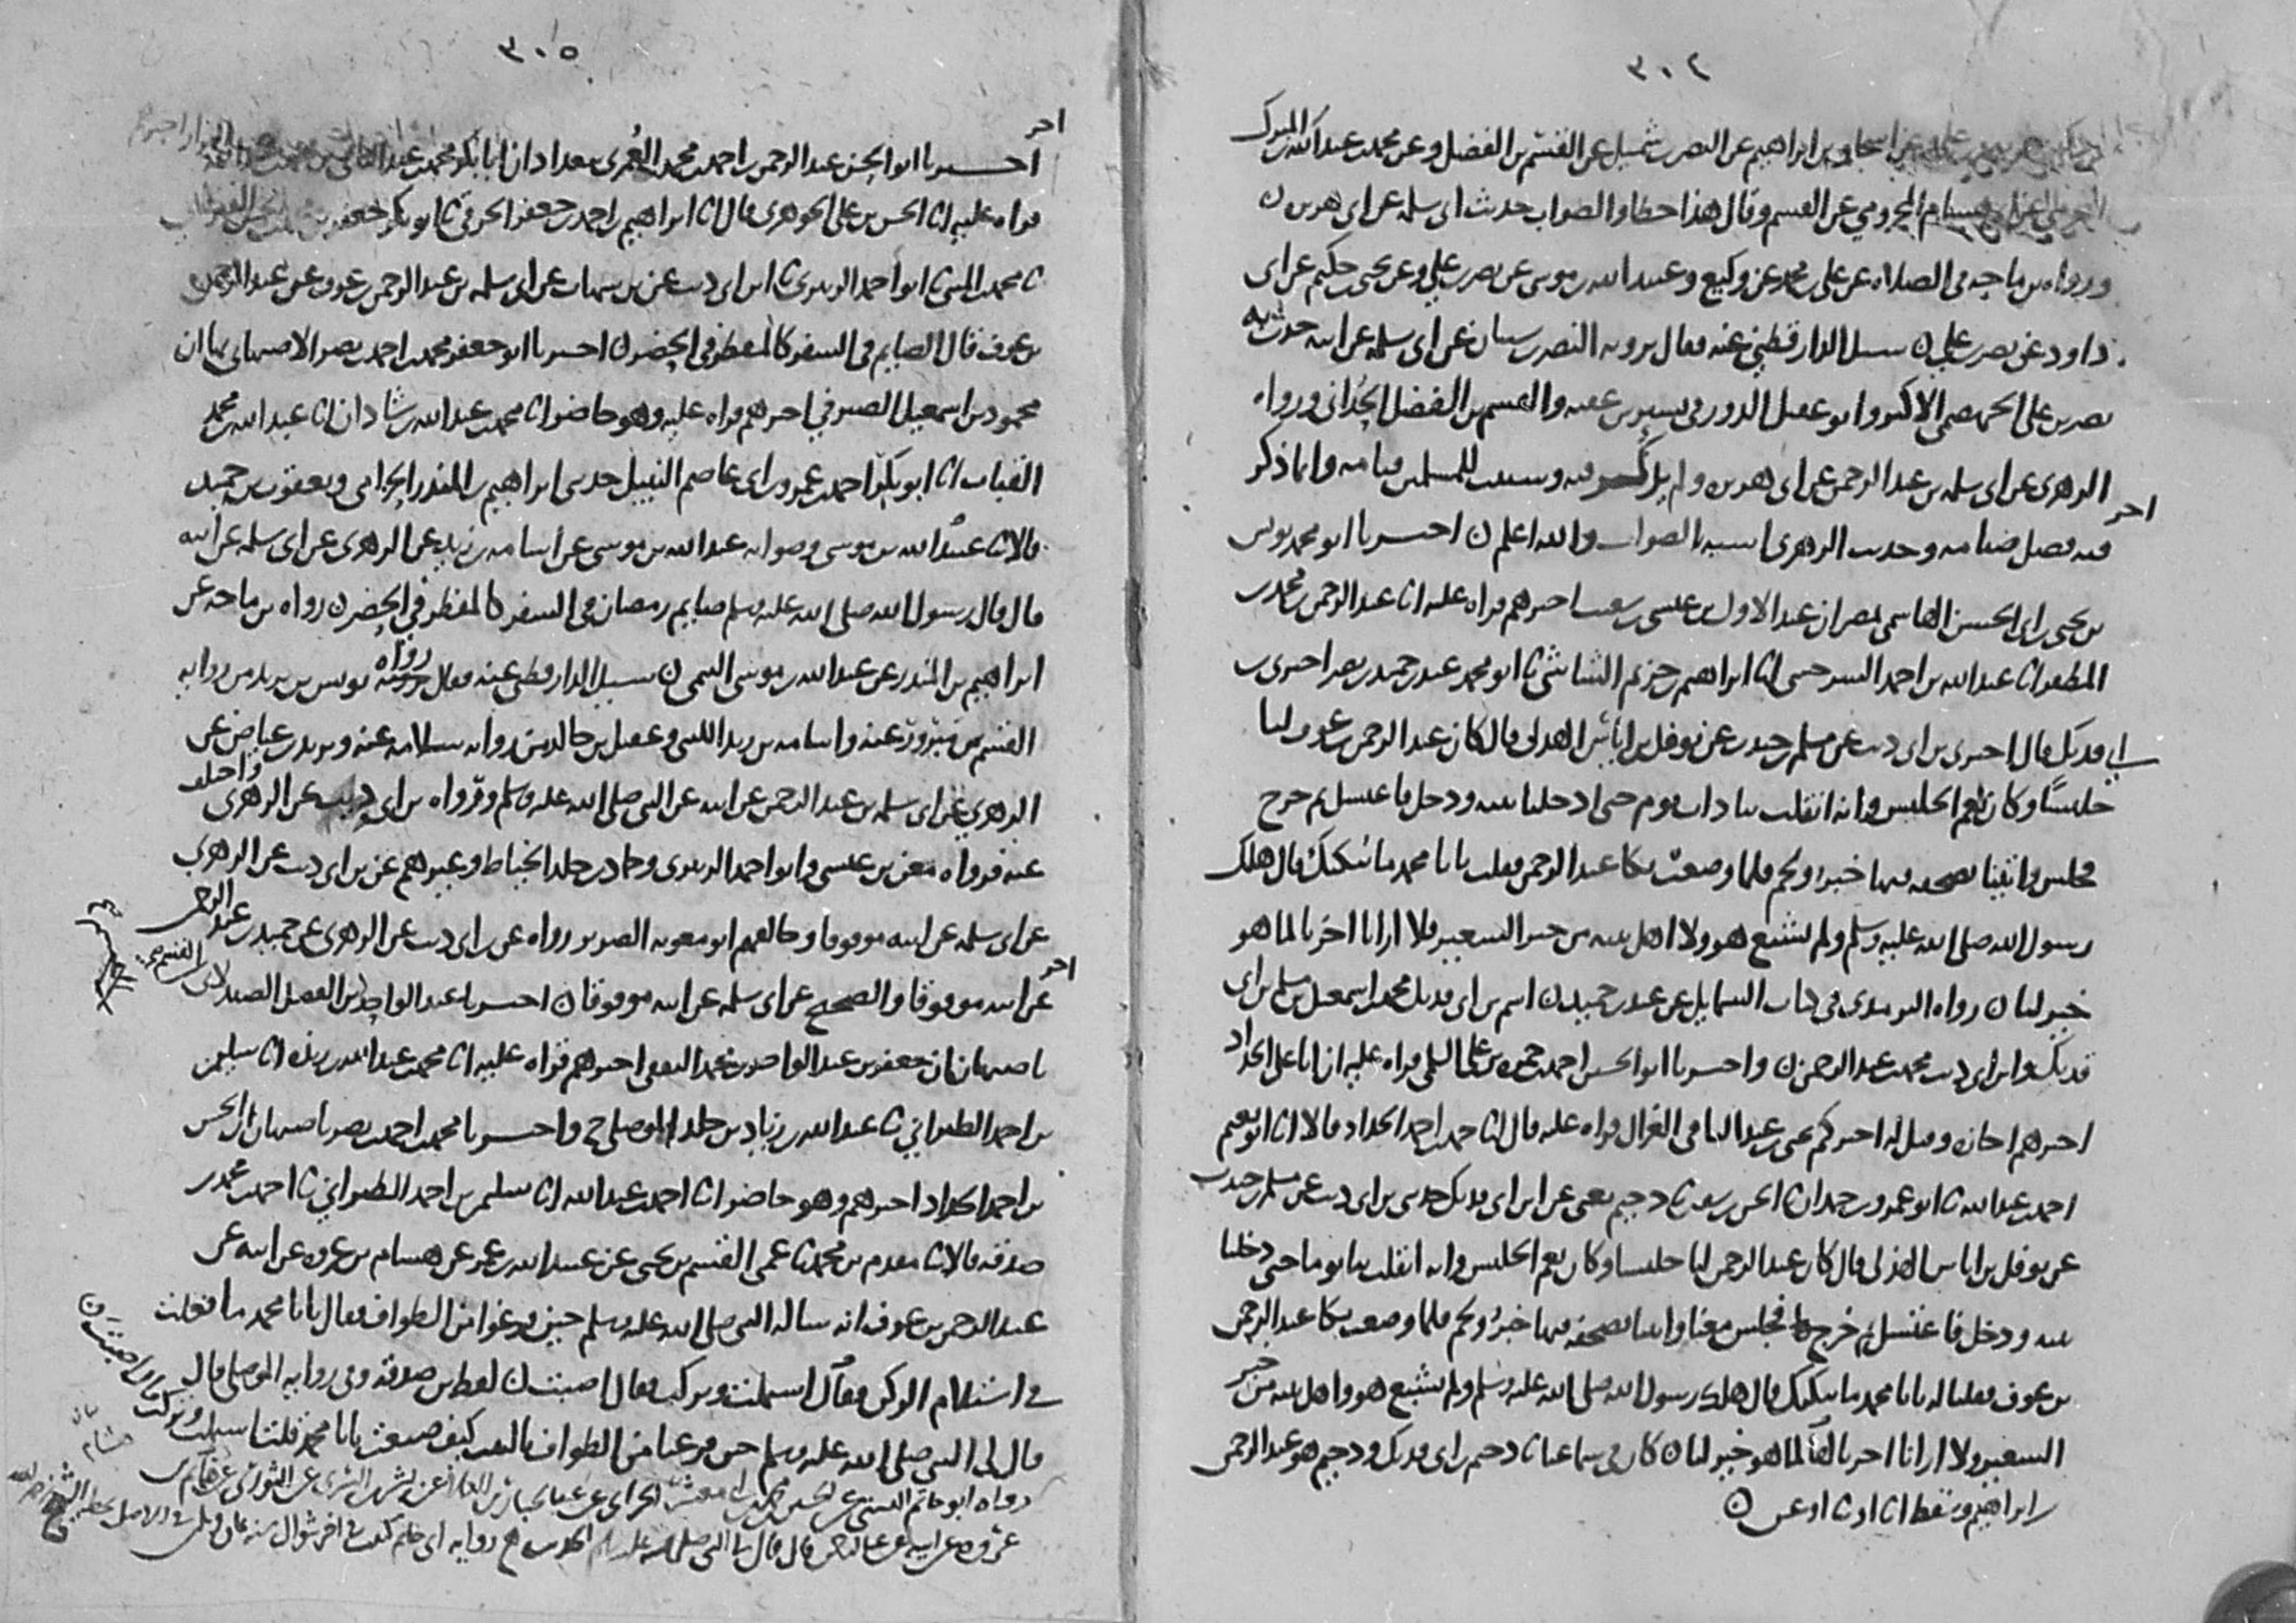 ٣٠٤
إسحاق بن ابراهيم عن النضر بن شميل عن القسم بن الفضل وعن محمد بن عبد الله بن المبارك
هشام المخزومي عن القسم وقال هذا خطا والصواب حديث ابي سلمه عن ابي هريرة ن
ورواه بن ماجه في الصلاه عن علي بن محمد عن وكيع وعبيد الله بن موسى عن نصر بن علي وعن يحيى بن حكيم عن ابي
داود عن نصر بن علي ن سيل الدارقطني عنه فقال يرويه النضر بن شيبان عن ابي سلمه عن ابيه حدث به
نصر بن علي الجهضمي الاكبر وابو عقيل الدورقي بشير بن عقبه والقسم بن الفضل الحداني ورواه
الزهري عن ابي سلمه بن عبد الرحمن عن ابي هريره ولم يذكر فيه وسننت للمسلمين قيامه وانما ذكر
فيه فضل صيامه وحديث الزهري اشبه بالصواب والله اعلم ن اخبرنا ابو محمد يونس
اخر
بن يحيى بن ابي الحسن الهاشمي بمصر ان عبد الاول بن عيسى بن شعيب اخبرهم قراه عليه انا عبد الرحمن بن محمد بن
المظفر انا عبد الله بن احمد السرخسي انا ابراهيم بن خزيم الشاشي ثنا ابو محمد عبد بن حميد بن نصر اخبرني بن
ابي فديك قال اخبرني بن ابي ذيب عن مسلم بن جندب عن نوفل بن اياس الهذلي قال كان عبد الرحمن بن عوف لنا
جليسًا وكان نعم الجليس وانه انقلب بنا ذات يوم حتى ادخلنا بيته ودخل فاغتسل ثم خرج
فجلس واتينا بصحفه فيها خبز ولحم فلما وضعت بكا عبد الرحمن فقلت يا با محمد ما يبكيك قال هلك
رسول الله صلى الله عليه وسلم ولم يشبع هو ولا اهل بيته من خبز الشعير فلا ارانا اخرنا لما هو
خير لنا ن رواه الترمذي في كتاب الشمايل عن عبد بن حميد ن اسم بن ابي فديك محمد بن اسمعيل بن مسلم بن ابي
فديك وابن ابي ذيب محمد بن عبد الرحمن ن واخبرنا ابو الحسن احمد بن حمزه بن علي السلمي قراه عليه ان ابا علي الحداد
اخبرهم اجازه وقيل له اخبركم يحيى بن عبد الباقي الغزال قراه عليه قال انا حمد بن احمد الحداد قالا انا ابو نعيم
احمد بن عبد الله ثنا ابو عمرو بن حمدان ثنا الحسن بن سفين ثنا دحيم يعني عن ابن ابي فديك حدثني بن ابي ذيب عن مسلم بن جندب
عن نوفل بن اياس الهذلي قال كان عبد الرحمن لنا جليسا وكان نعم الجليس وانه انقلب بنا يوما حتى دخلنا
بيته ودخل فاغتسل ثم خرج فجلس معنا واتينا بصحفه فيها خبز ولحم فلما وضعت بكا عبد الرحمن
بن عوف فقلنا له يا با محمد ما يبكيك قال هلك رسول الله صلى الله عليه وسلم ولم يشبع هو واهل بيته من خبز
الشعير ولا ارانا اخرنا لما هو خير لنا ن كان في سماعنا دحيم بن ابي فديك ودحيم هو عبد الرحمن
بن ابراهيم وسقط
٣٠٥
اخر
اخبرنا ابو الحسن عبد الرحمن بن احمد بن محمد العُمري ببغداد ان ابا بكر محمد بن عبد الباقي
قراه عليه انا الحسن بن علي الجوهري قال انا ابراهيم بن احمد بن جعفر الخرقي ثنا ابو بكر جعفر بن
ثنا محمد بن المثنى ثنا ابو احمد الزبيري ثنا ابن ابي ذيب عن بن شهاب عن ابي سلمه بن عبد الرحمن بن عوف عن عبد الرحمن
بن عوف قال الصايم في السفر كالمفطر في الحضر ن اخبرنا ابو جعفر محمد بن احمد بن نصر الاصبهاني بها ان
محمود بن اسمعيل الصيرفي اخبرهم قراه عليه وهو حاضر انا محمد بن عبد الله بن شاذان انا عبد الله بن محمد
القباب انا ابو بكر احمد بن عمرو بن ابي عاصم النبيل حدثني ابراهيم بن المنذر الحزامي ويعقوب بن حميد
قالا ثنا عبيد الله بن موسى وصوابه عبد الله بن موسى عن اسامه بن زيد عن الزهري عن ابي سلمه عن ابيه
قال قال رسول الله صلى الله عليه وسلم صايم رمضان في السفر كالمفطر في الحضر ن رواه بن ماجه عن
ابراهيم بن المنذر عن عبد الله بن موسى التيمي ن سيل الدارقطني عنه فقال رواه يونس بن يزيد من روايه
القسم بن مبرور عنه واسامه بن زيد الليثي وعقيل بن خالد من روايه سلامه عنه ويزيد بن عياض عن
الزهري عن ابي سلمه بن عبد الرحمن عن ابيه عن النبي صلى الله عليه وسلم ورواه بن ابي ذيب عن الزهري واختلف
عنه فرواه معن بن عيسى وابو احمد الزبيري وحماد بن خالد الخياط وغيرهم عن بن ابي ذيب عن الزهري
عن ابي سلمه عن ابيه موقوفا وخالفهم ابو معويه الضرير رواه عن بن ابي ذيب عن الزهري عن حميد بن عبد الرحمن
عن ابيه موقوفا والصحيح عن ابي سلمه عن ابيه موقوفا ن اخبرنا عبد الواحد بن القسم بن الفضل الصيدلاني
اخر
باصبهان ان جعفر بن عبد الواحد بن محمد الثقفي اخبرهم قراه عليه انا محمد بن عبد الله بن ريذه انا سليمن
بن احمد الطبراني ثنا عبد الله بن زياد بن خالد الموصلي ح واخبرنا محمد بن احمد بن نصر باصبهان ان الحسن
بن احمد الحداد اخبرهم وهو حاضر انا احمد بن عبد الله انا سليمن بن احمد الطبراني ثنا احمد بن محمد بن
صدقه قالا ثنا مقدم بن محمد ثنا عمي القسم بن يحيى عن عبيد الله بن عمر عن هشام بن عروه عن ابيه عن
عبد الرحمن بن عوف انه ساله النبي صلى الله عليه وسلم حين فرغوا من الطواف فقال يا با محمد ما فعلت
في استلام الركن فقال استلمت وتركت فقال اصبت ن لفظ بن صدقه وفي روايه الموصلي قال
قال لي النبي صلى الله عليه وسلم حين فرغنا من الطواف بالبيت كيف صنعت يا با محمد قلت استلمت وتركت
قال اصبت ن
رواه ابو حاتم البستي عن الحسين بن محمد بن ابي معشر
عروه عن ابيه عن عبد الرحمن قال قال لي النبي صلى الله عليه وسلم